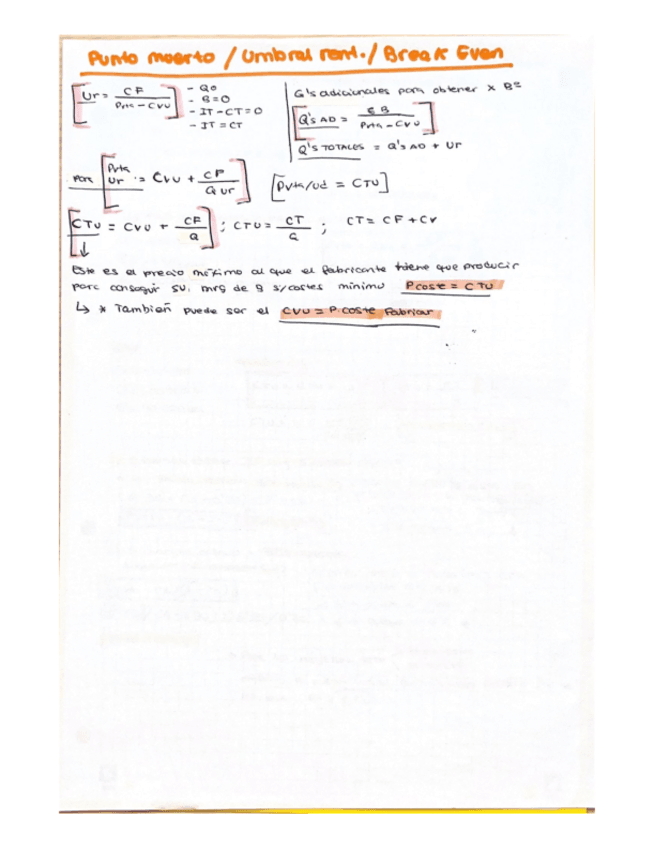 Punto muerto / Umbral rent. / Break Even
Ur = CF / Pvta - CVU
- Q0
- B=0
- IT - CT = 0
- IT = CT
Q's adicionales para obtener x Bº
Q's AD = €B / Pvta - CVU
Q's TOTALES = Q's AD + Ur
Para Pvta Ur = CVU + CF / Q Ur [Pvta/ud = CTU]
CTU = CVU + CF / Q ; CTU = CT / Q ; CT = CF + CV
Este es el precio máximo al que el fabricante tiene que producir
para conseguir su mrg de g s/costes mínimo Pcoste = CTU
↳ * También puede ser el CVU = P.coste fabricar